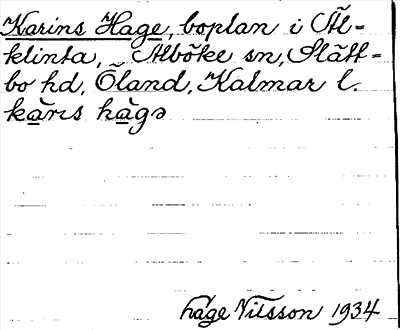 Karins Hage, boplan i Äl-
klinta, Alböke sn, Slätt-
bo hd, Öland, Kalmar l.
kạrıs hạgə
håge Nilsson 1934